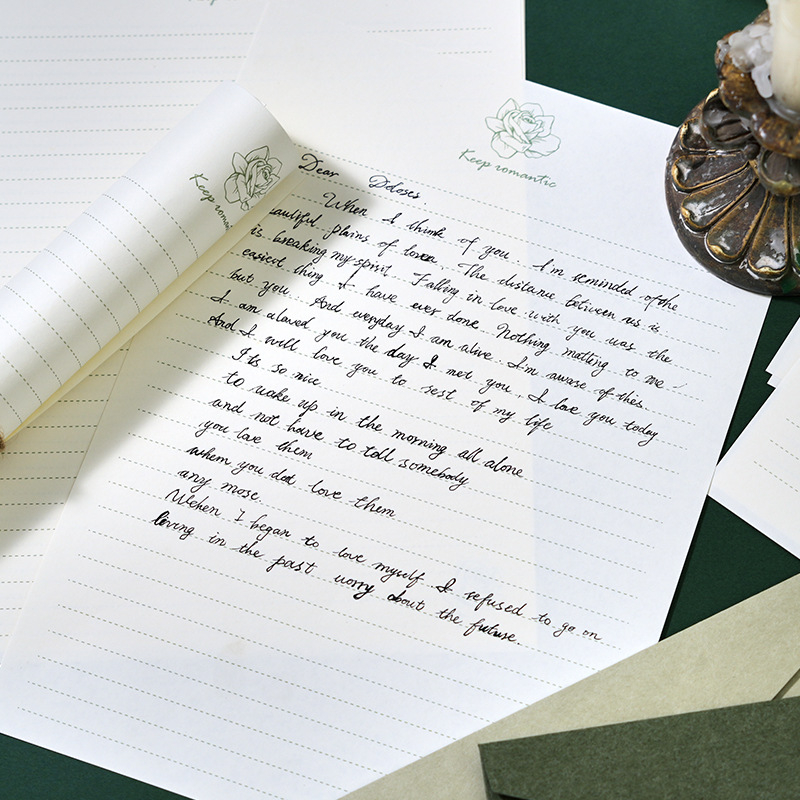 Keep romantic
Keep roman
Dear Doloses
When I think of you. I'm reminded of the
autiful plains of lovea. The distance between us is
is breaking my spirit. Falling in love with you was the
easiest thing I have ever done. Nothing matting to me
but you. And everyday I am alive. I'm aware of this.
I am alaved you the day I met you. I love you today
And I will love you to sest of my life
It's so nice
to wake up in the morning all alone
and not have to tell somebody
you love them
whem you dod love them
any mose.
Wehen I began to love myself I refused to go on
loving in the past worry about the future.